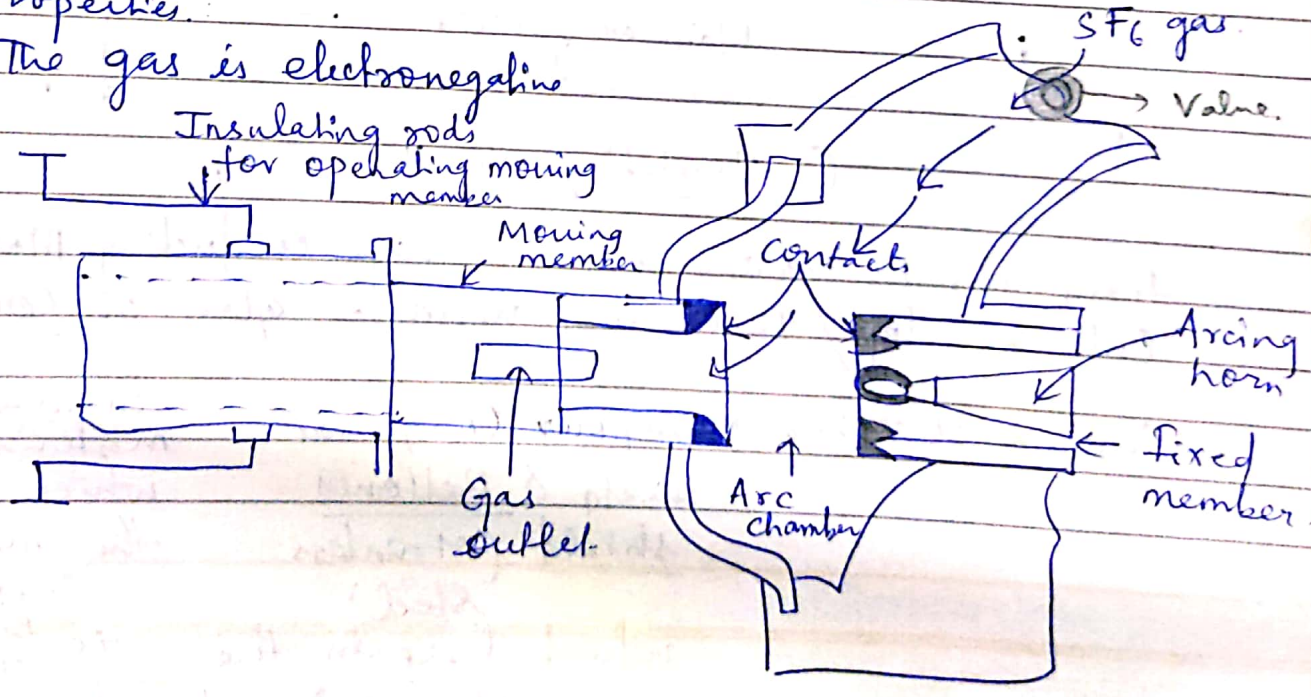 roperties.
The gas is electronegative
SF6 gas.
Valve.
Insulating rods
for operating moving
member
Moving
member
Contacts
Arcing
horn
Fixed
member
Gas
outlet.
Arc
chamber